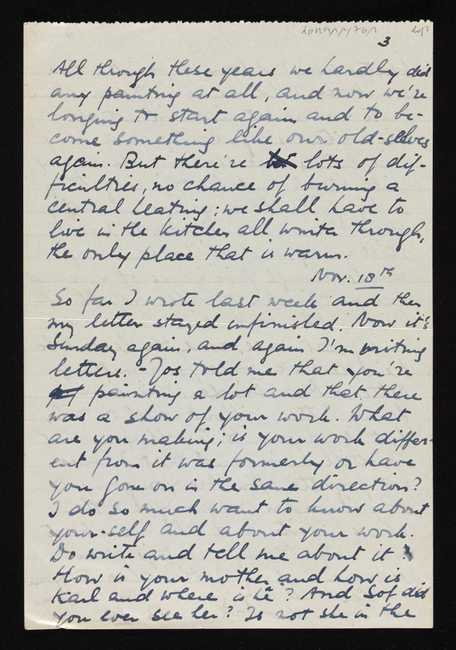 3
All through these years we hardly did
any painting at all, and now we're
longing to start again and to be-
come something like our old-selves
again. But there're lots of dif-
ficulties, no chance of burning a
central heating; we shall have to
live in the kitchen all winter through,
the only place that is warm.
Nov. 18th
So far I wrote last week and then
my letter stayed unfinished. Now it's
Sunday again, and again I'm writing
letters. - Jos told me that you're
painting a lot and that there
was a show of your work. What
are you making; is your work differ-
ent from it was formerly or have
you gone on in the same direction?
I do so much want to know about
your-self and about your work.
Do write and tell me about it
How is your mother and how is
Karl and where is he? And Sof did
you ever see her? Is not she in the